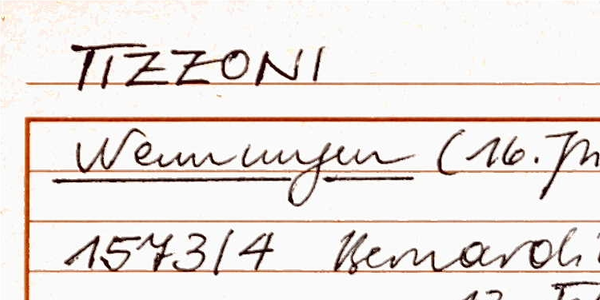 TIZZONI
Wennungen (16. Jh
1573/4 Bernardi